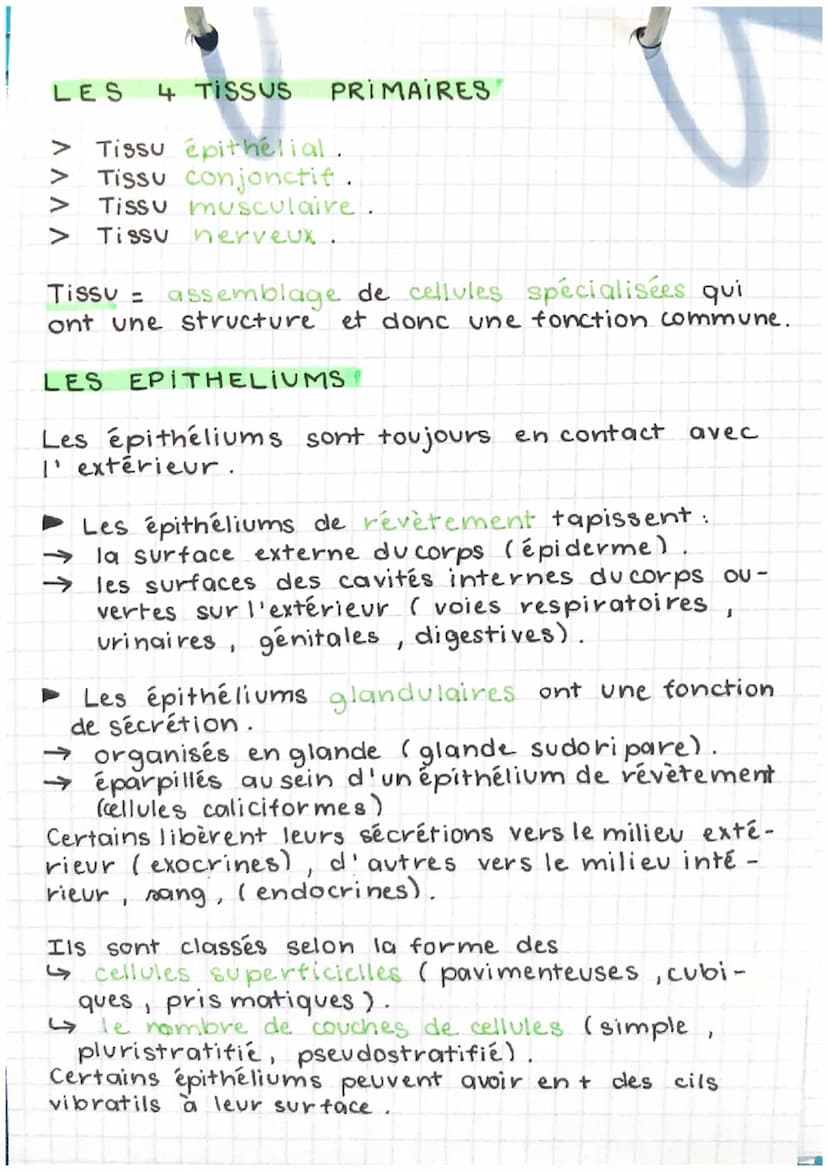 LES 4 TISSUS PRIMAIRES
> Tissu épithélial.
> Tissu conjonctif.
> Tissu musculaire.
> Tissu nerveux.
Tissu = assemblage de cellules spécialisées qui
ont une structure et donc une fonction commune.
LES EPITHELIUMS
Les épithéliums sont toujours en contact avec
l'extérieur.
▶ Les épithéliums de révètement tapissent :
→ la surface externe du corps (épiderme).
→ les surfaces des cavités internes du corps ou-
vertes sur l'extérieur (voies respiratoires,
urinaires, génitales, digestives).
▶ Les épithéliums glandulaires ont une fonction
de sécrétion.
→ organisés en glande (glande sudoripare).
→ éparpillés au sein d'un épithélium de révètement
(cellules caliciformes)
Certains libèrent leurs sécrétions vers le milieu exté-
rieur (exocrines), d'autres vers le milieu inté-
rieur, sang, (endocrines).
Ils sont classés selon la forme des
↳ cellules superficielles (pavimenteuses, cubi-
ques, prismatiques).
↳ le nombre de couches de cellules (simple,
pluristratifié, pseudostratifié).
Certains épithéliums peuvent avoir en + des cils
vibratils à leur surface.